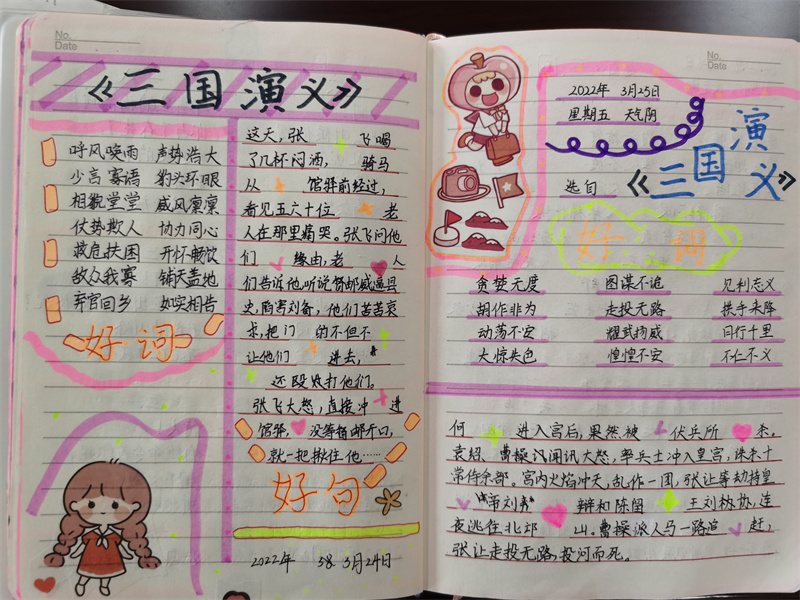 No.
Date
《三国演义》
呼风唤雨 声势浩大
少言寡语 豹头环眼
相貌堂堂 威风凛凛
仗势欺人 协力同心
救危扶困 开怀畅饮
敌众我寡 铺天盖地
弃官回乡 如实相告
好词
这天,张 飞喝
了几杯闷酒, 骑马
从 馆驿前经过,
看见五六十位 老
人在那里痛哭。张飞问他
们 缘由,老 人
们告诉他,听说督邮威逼县
史,陷害刘备,他们苦苦哀
求,把门 的不但不
让他们 进去,
还殴打他们。
张飞大怒,直接冲 进
馆驿, 没等督邮开口,
就一把揪住他……
好句
2022年 58 3月24日
No.
Date
2022年 3月25日
星期五 天气阴
选自 《三国演义》
好词
贪婪无度 图谋不追 见利忘义
胡作非为 走投无路 拱手来降
动荡不安 耀武扬威 日行千里
大惊失色 惶惶不安 不仁不义
何 进入宫后,果然被 伏兵所 杀,
袁绍、曹操闻讯大怒,率兵士冲入皇宫,诛杀十
常侍余部。宫内火焰冲天,乱作一团,张让等劫持皇
帝刘 辩和陈留 王刘协,连
夜逃往北邙 山。曹操派人马一路追 赶,
张让走投无路,投河而死。